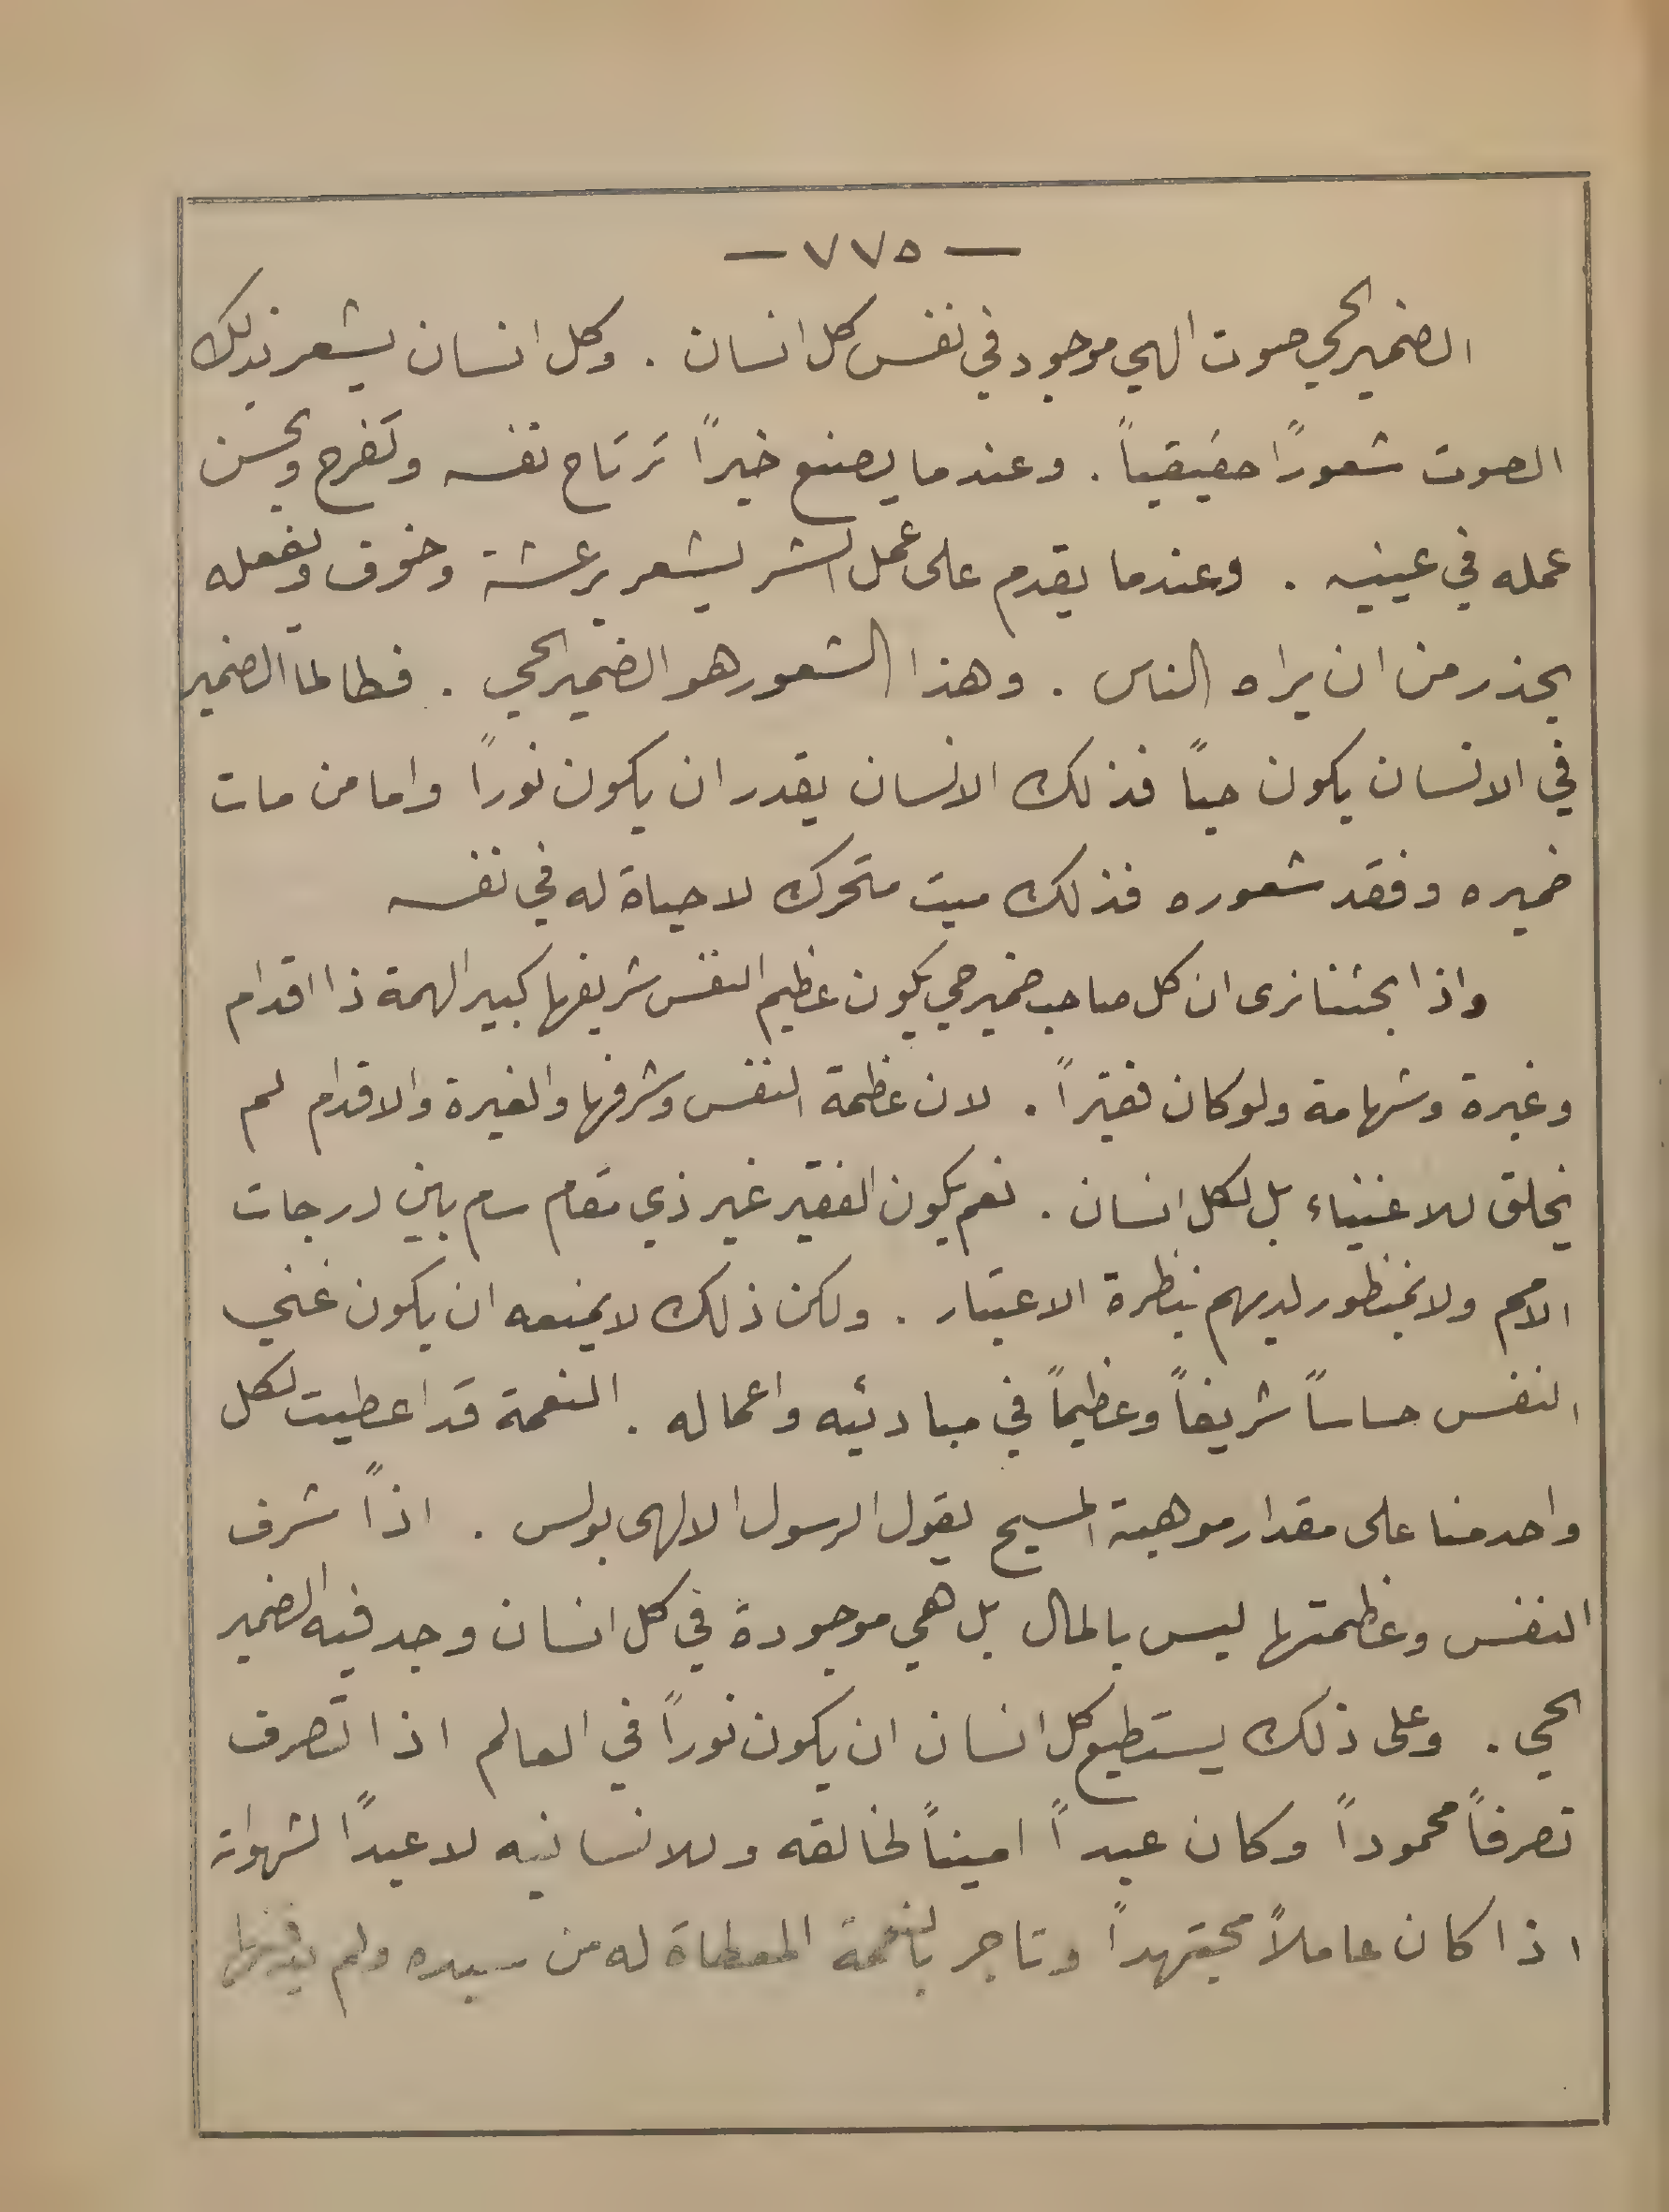 — ٧٧٥ —
الضمير الحي صوت الهي موجود في نفس كل انسان . وكل انسان يشعر بذلك
الصوت شعورًا حقيقياً . وعندما يصنع خيرًا ترتاح نفسه وتفرح ويحسن
عمله في عينيه . وعندما يقدم على عمل الشر يشعر برعشة وخوف وبفعله
يحذر من ان يراه الناس . وهذا الشعور هو الضمير الحي . فطالما الضمير
في الانسان يكون حياً فذلك الانسان يقدر ان يكون نورًا واما من مات
ضميره وفقد شعوره فذلك ميت متحرك لا حياة له في نفسه
واذا بحثنا نرى ان كل صاحب ضمير حي يكون عظيم النفس شريفها كبير الهمة ذا اقدام
وغيرة وشهامة ولو كان فقيراً . لان عظمة النفس وشرفها والغيرة والاقدام لم
يخلق للاغنياء بل لكل انسان . نعم يكون الفقير غير ذي مقام سام بين درجات
الامم ولا بمنظور لديهم بنظرة الاعتبار . ولكن ذلك لا يمنعه ان يكون غني
النفس حساساً شريفاً وعظيماً في مبادئه واعماله . النعمة قد اعطيت لكل
واحد منا على مقدار موهبة المسيح يقول الرسول الالهي بولس . اذاً شرف
النفس وعظمتها ليس بالمال بل هي موجودة في كل انسان وجد فيه الضمير
الحي . وعلى ذلك يستطيع كل انسان ان يكون نوراً في العالم اذا تصرف
تصرفاً محموداً وكان عبداً اميناً لخالقه وللانسانيه لا عبدًا لشهواته
اذا كان عاملاً مجتهداً وتاجر بالنعمة المعطاة له من سيده ولم يدفنها